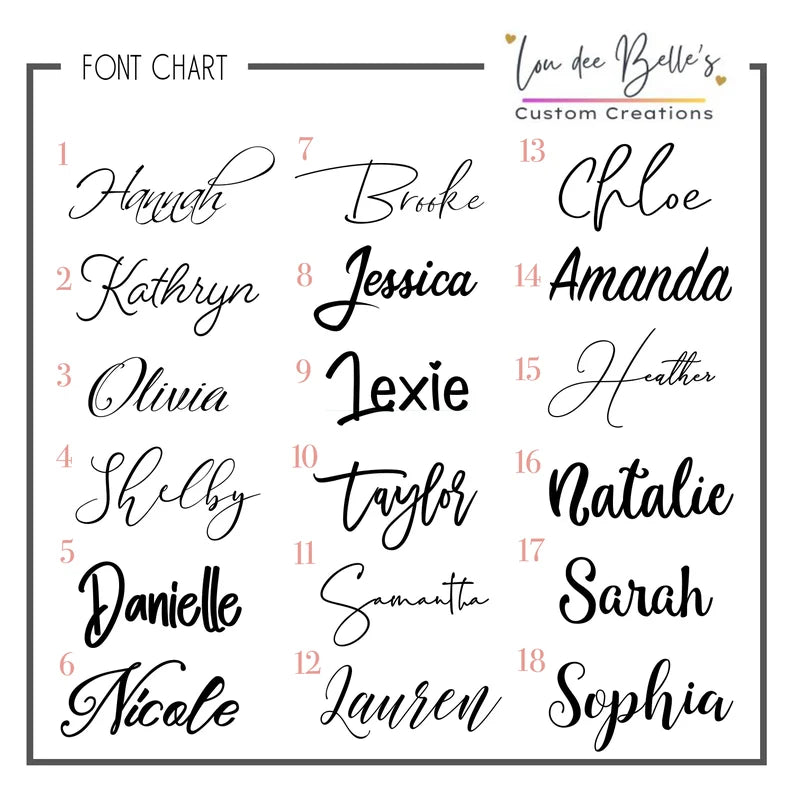 FONT CHART
Lou dee Belle's
Custom Creations
1
Hannah
2
Kathryn
3
Olivia
4
Shelby
5
Danielle
6
Nicole
7
Brooke
8
Jessica
9
Lexie
10
Taylor
11
Samantha
12
Lauren
13
Chloe
14
Amanda
15
Heather
16
Natalie
17
Sarah
18
Sophia